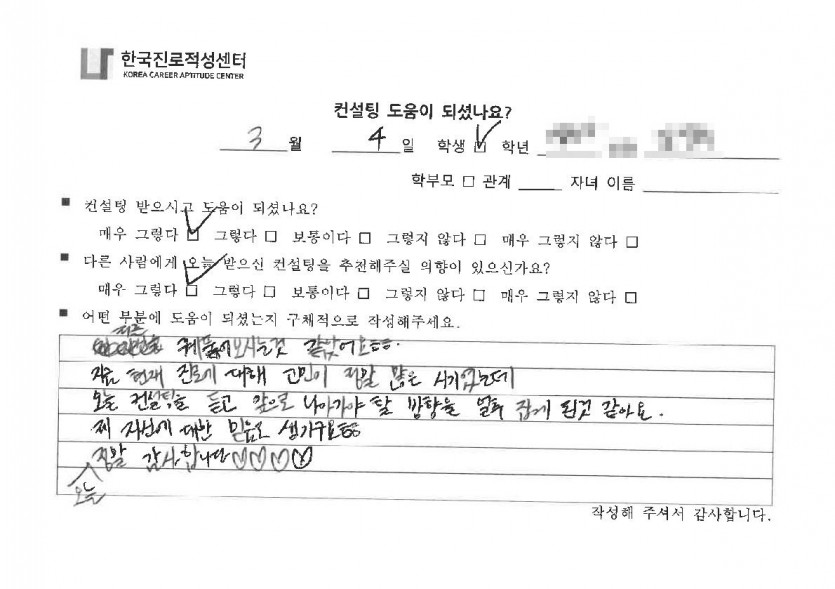 한국진로적성센터
KOREA CAREER APTITUDE CENTER
컨설팅 도움이 되셨나요?
3 월 4 일 학생 ☑ 학년
학부모 □ 관계 자녀 이름
■ 컨설팅 받으시고 도움이 되셨나요?
매우 그렇다 ☑ 그렇다 □ 보통이다 □ 그렇지 않다 □ 매우 그렇지 않다 □
■ 다른 사람에게 오늘 받으신 컨설팅을 추천해주실 의향이 있으신가요?
매우 그렇다 ☑ 그렇다 □ 보통이다 □ 그렇지 않다 □ 매우 그렇지 않다 □
■ 어떤 부분에 도움이 되셨는지 구체적으로 작성해주세요.
저를 꿰뚫어보시는것 같았어요ㅎㅎ
지금 현재 진로에 대해 고민이 정말 많은 시기였는데
오늘 컨설팅을 듣고 앞으로 나아가야 할 방향을 얼추 잡게 된것 같아요.
제 자신에 대한 믿음도 생기구요ㅎㅎ
오늘 정말 감사합니다♡♡♡♡
작성해 주셔서 감사합니다.